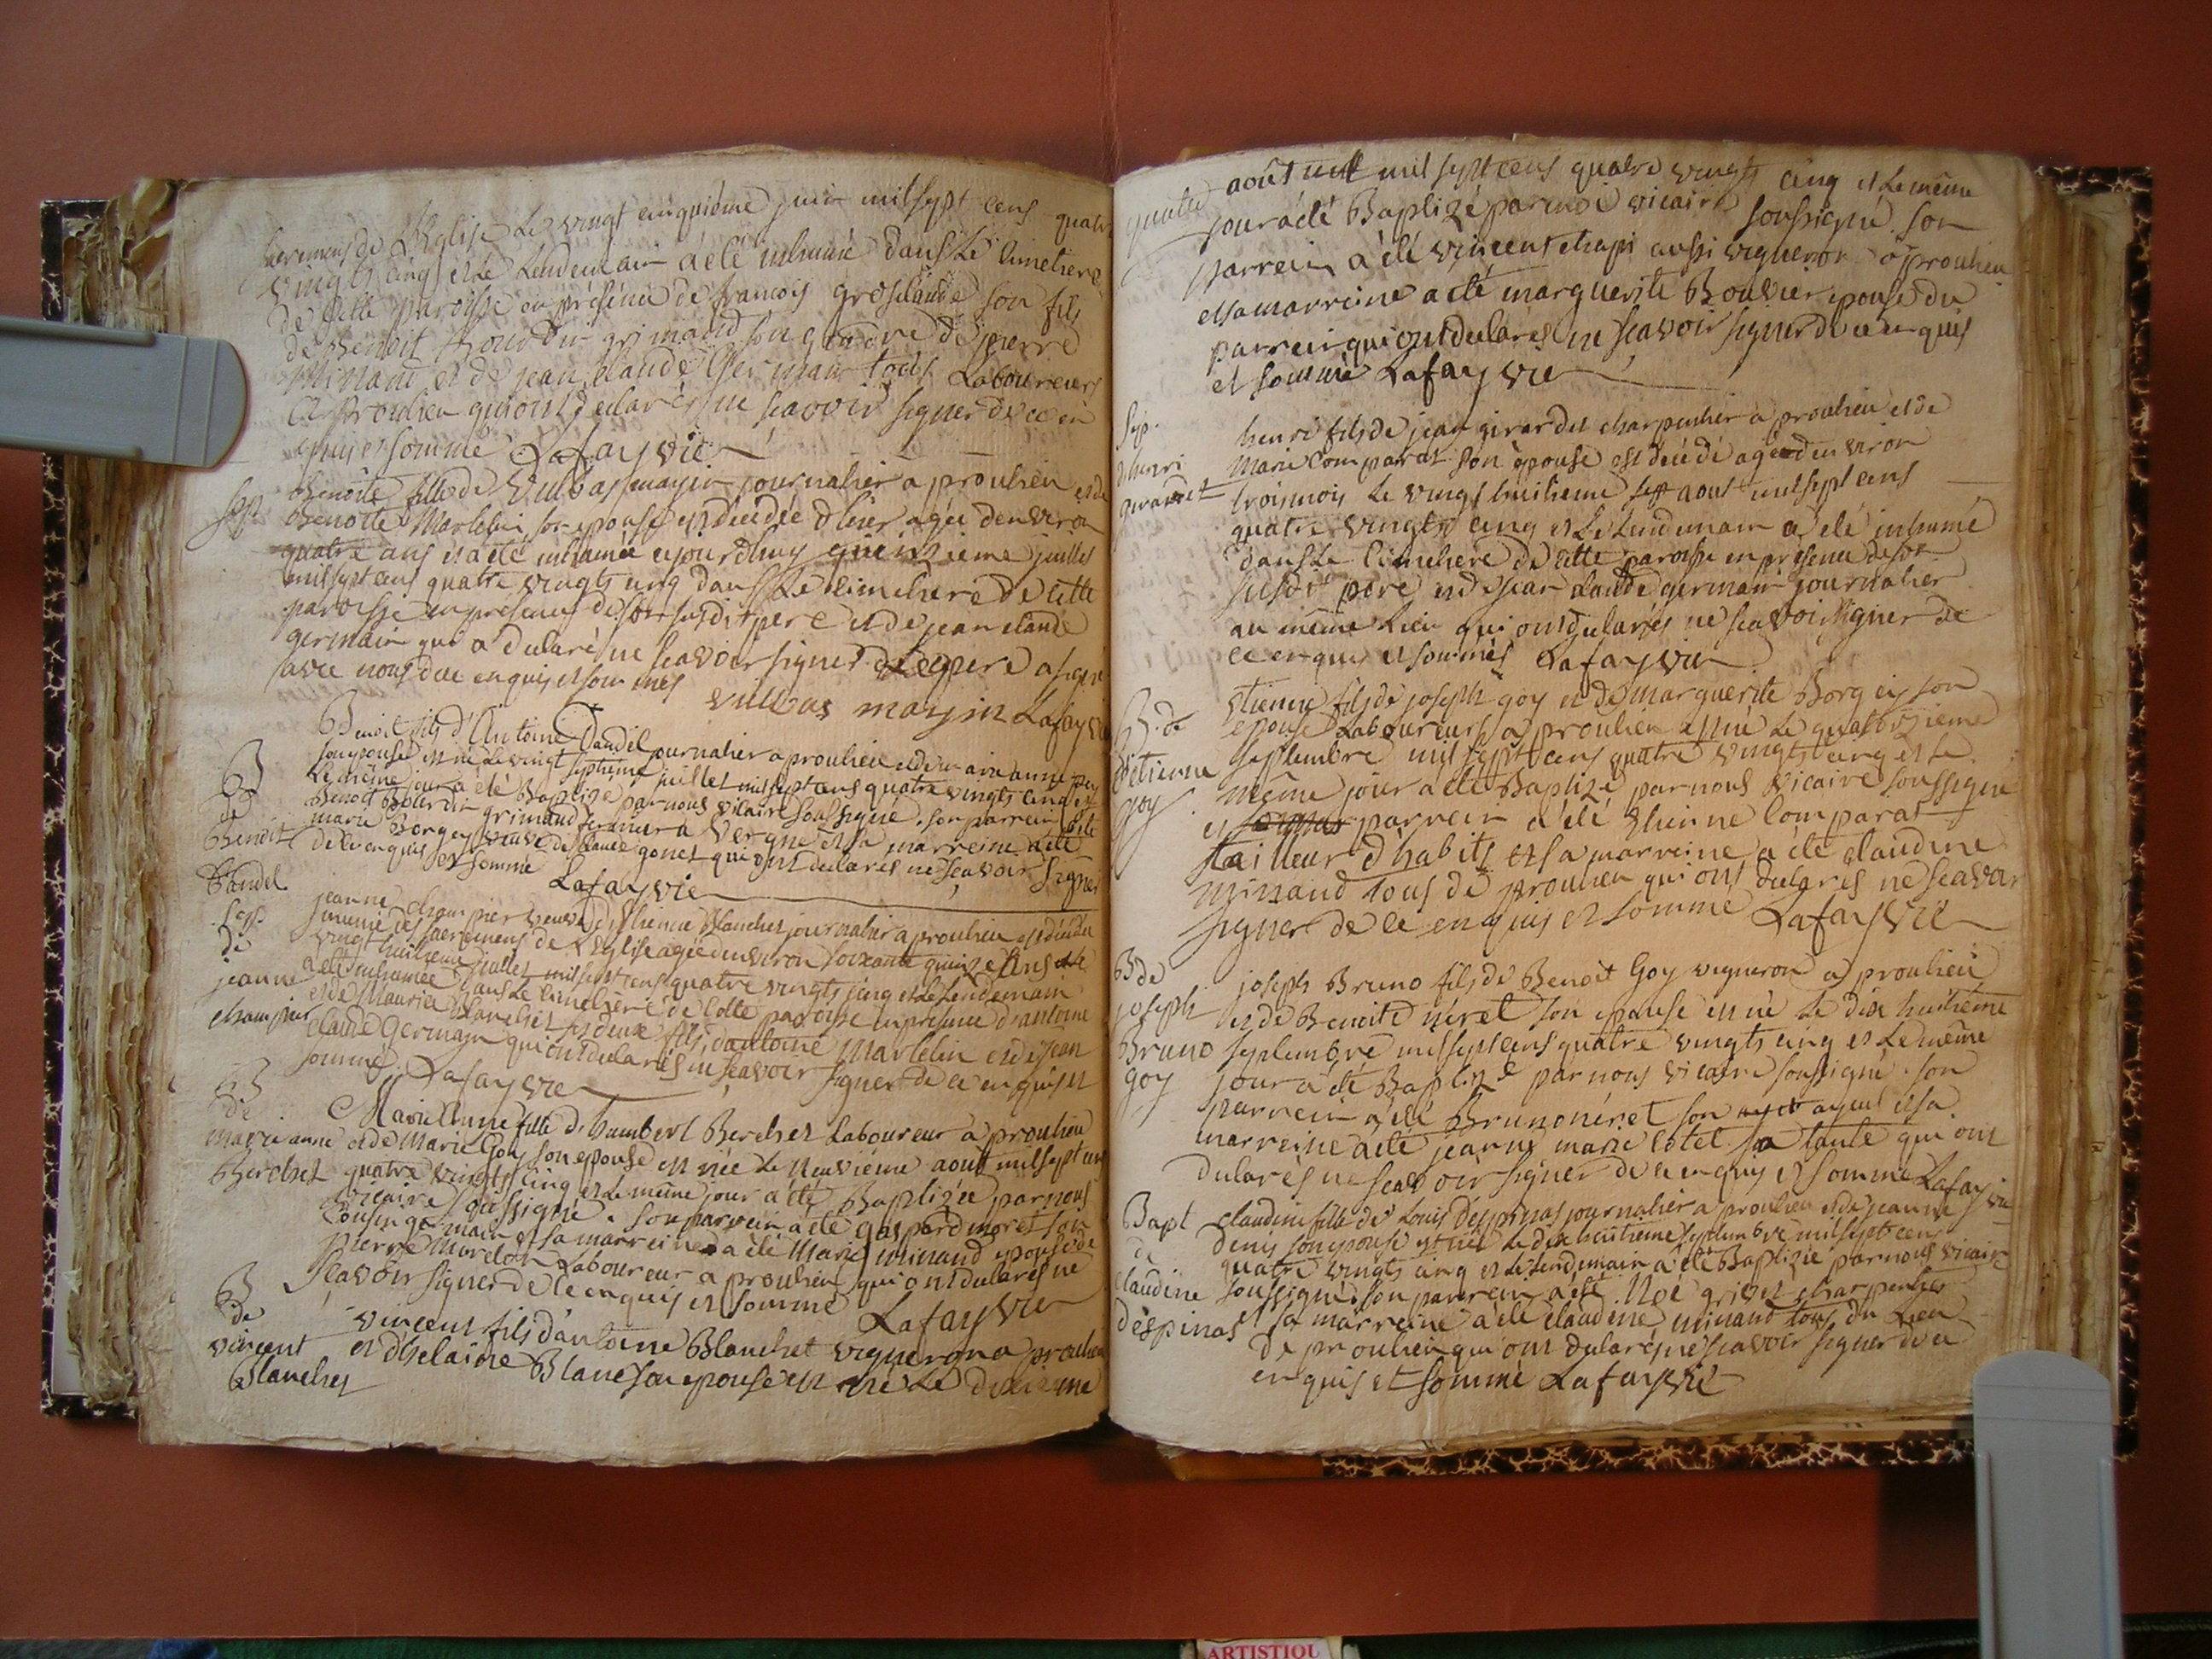 sacremens de L'Eglise Le vingt cinquiéme juin mil sept cens quatre
vingts cinq et Le Lendemain a été inhumé dans Le Cimetiere
de cette paroisse en présence de francois grosclaude son fils
de Benoit Bourdin grimaud son gendre de pierre
Minand et de jean claude Germain tous Laboureurs
a proulieu qui ont declarés ne scavoir signer de ce en
quis et sommé Lafay vic
Sep. Benoite fille de Vulbas mayin journalier a proulieu et de
Benoite Martelin son epouse est decedée d'hier agée d'environ
quatre ans et a été inhumée ajourdhuy quinzieme juillet
mil sept cens quatre vingts cinq dans Le cimetiere de cette
paroisse en présence de son susdit pere et de jean claude
germain qui a declaré ne scavoir signer Le pere a signé
avec nous de ce enquis et sommés
vulbas mayin Lafay vic
Benoit fils d'Antoine Tandel journalier a proulieu et de marie anne
B son epouse est né Le vingt septiéme juillet mil sept cens quatre vingts cinq et
de Le même jour a été Baptizé par nous vicaire soussigné. son parrein a été
Benoit Benoit Bourdin grimaud fermier a Vergne et sa marreine a été
Tandel marie Borgey veuve de claude gonet qui ont declarés ne scavoir signer
de ce enquis et sommé Lafay vic
Sep. jeanne champier veuve d'Etienne Blanchet journalier a proulieu est décédée
de munie des sacremens de L'Eglise agée d'environ soixante quinze ans Le
jeanne vingt huitieme juillet mil sept cens quatre vingts cinq et Le Lendemain
champier a été inhumée dans Le cimetiere de cette paroisse en présence d'antoine
et de Maurice Blanchet ses deux fils, d'antoine Martelin et de jean
claude Germain qui ont declarés ne scavoir signer de ce enquis et
sommé. Lafay vic
B
de Marie Anne fille d'humbert Berchet Laboureur a proulieu
marie anne et de Marie Goy son epouse est née Le neuviéme aout mil sept cens
Berchet quatre vingts cinq et Le même jour a été Baptizée par nous
vicaire soussigné. son parrein a été gaspard moret son
Cousin germain et sa marreine a été Marie minand epouse de
pierre Morelon Laboureur a proulieu qui ont declarés ne
scavoir signer de ce enquis et sommé Lafay vic
B
de vincent fils d'antoine Blanchet vigneron a proulieu
vincent et d'helaine Blanc son epouse est né Le dixieme
Blanchet
août mil sept cens quatre vingts cinq et Le même
jour a été Baptizé par moi vicaire soussigné. son
parrein a été vincent chapi aussi vigneron a proulieu
et sa marreine a été marguerite Bouvier epouse du
parrein qui ont declarés ne scavoir signer de ce enquis
et sommé Lafay vic
Sep. henri fils de jean girardet charpentier a proulieu et de
d'henri Marie Comparat son épouse est décédé agé d'environ
girardet trois mois Le vingt huitieme aout mil sept cens
quatre vingts cinq et Le Lendemain a été inhumé
dans Le Cimetiere de cette paroisse en présence de son
susdit pere et de jean claude germain journalier
au même Lieu qui ont declarés ne scavoir signer de
ce enquis et sommés Lafay vic
B. de Etienne fils de joseph goy et de Marguerite Borgey son
d'etienne epouse Laboureurs a proulieu est né Le quatorzieme
goy septembre mil sept cens quatre vingts cinq et Le
même jour a été Baptizé par nous vicaire soussigné
et parrein a été Etienne Comparat
tailleur d'habits et sa marreine a été claudine
minand tous de proulieu qui ont declarés ne scavoir
signer de ce enquis et sommé Lafay vic
B de joseph Bruno fils de Benoit Goy vigneron a proulieu
joseph et de Benoite néret son epouse est né Le dix huitiéme
Bruno septembre mil sept cens quatre vingts cinq et Le même
goy jour a été Baptizé par nous vicaire soussigné. son
parrein a été Bruno néret son ayeul et sa
marreine a été jeanne marie Cotet sa tante qui ont
declarés ne scavoir signer de ce enquis et sommé Lafay vic
Bapt claudine fille de Louis Déspinas journalier a proulieu et de jeanne
de denis son epouse est née Le dix huitieme septembre mil sept cens
claudine quatre vingts cinq et Le Lendemain a été Baptizée par nous vicaire
déspinas soussigné. son parrein a été Noé grivet charpentier
et sa marreine a été claudine minand tous du Lieu
de proulieu qui ont declaré ne scavoir signer de ce
enquis et sommé Lafay vic
ARTISTIQU